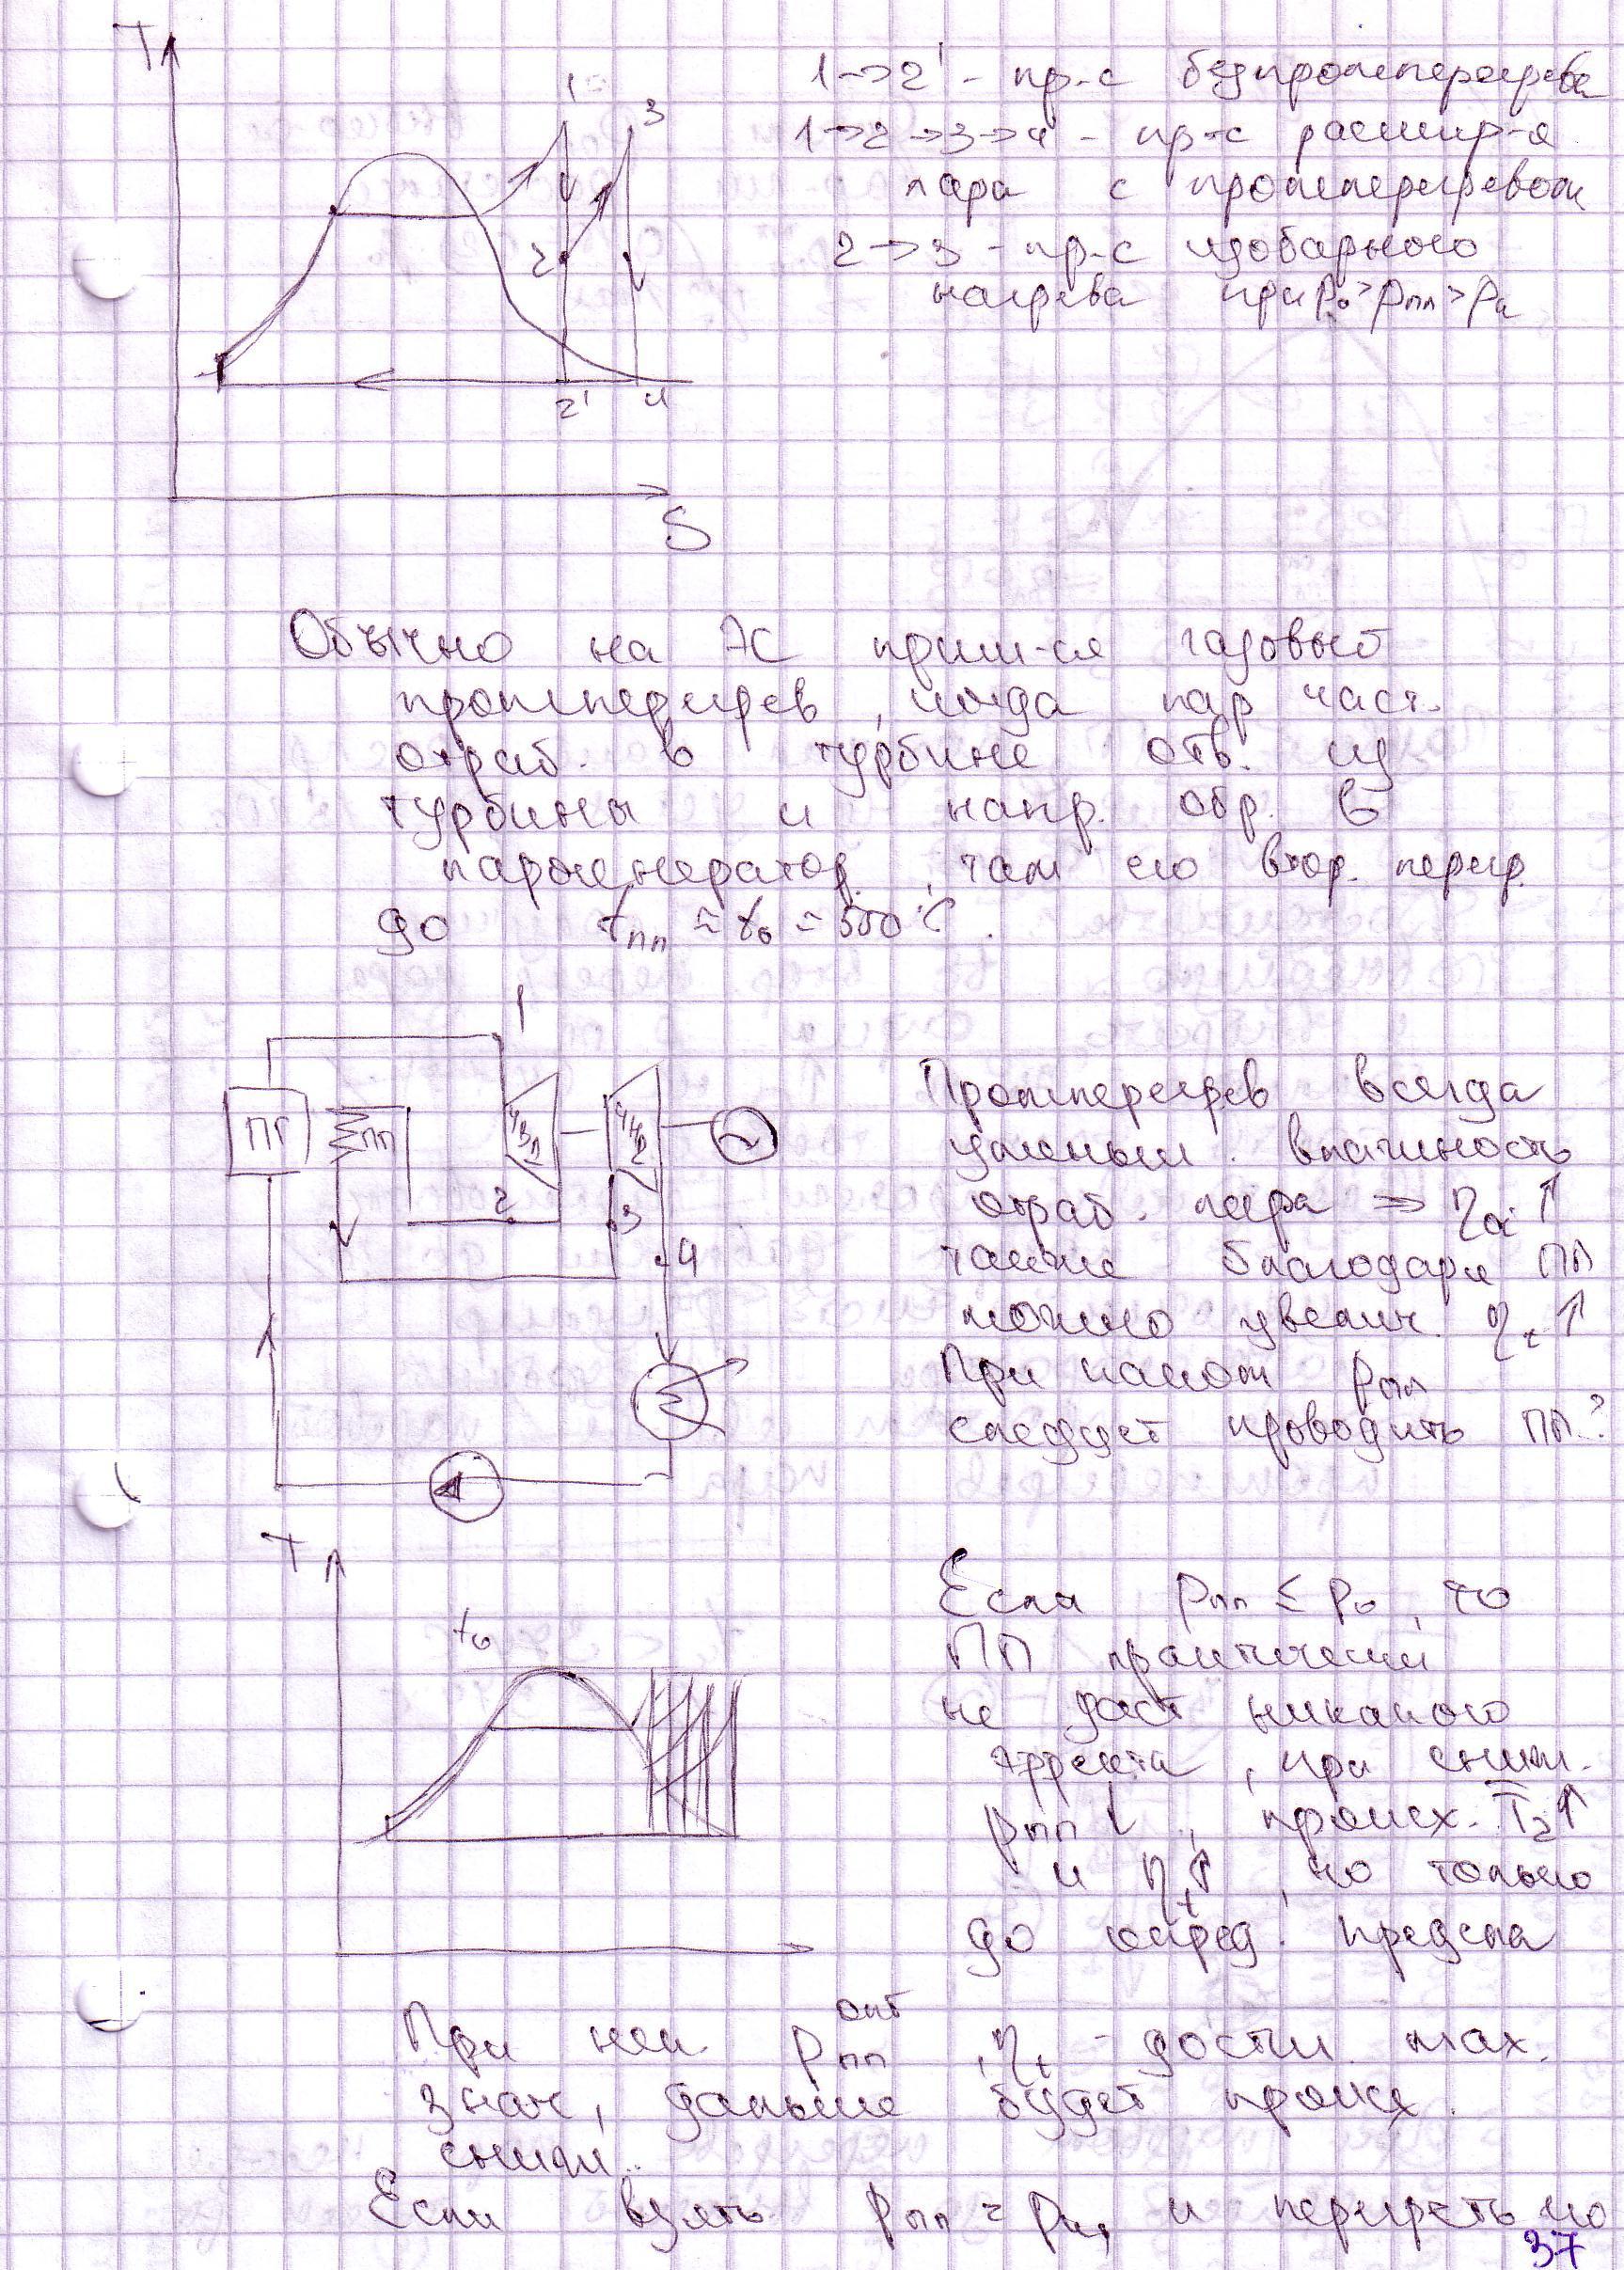 T
1
3
2
2'
4
S
1→2' - пр-с без промперегрева
1→2→3→4 - пр-с расшир-я
пара с промперегревом
2→3 - пр-с изобарного
нагрева при p₀>pпп>pк
Обычно на ЭС прим-ся газовый
промперегрев, когда пар част.
отраб. в турбине отв. из
турбины и напр. обр. в
парогенератор, там его втор. перегр.
до tпп ≈ t₀ = 500°C.
1
ПГ
ПП
ЧВД
ЧНД
2
3
4
Промперегрев всегда
уменьш. влажность
отраб. пара ⇒ ηoi ↑
также благодаря ПП
можно увелич. ηt ↑
При каком pпп
следует проводить ПП?
T
t₀
Если pпп ≤ p₀, то
ПП практически
не даст никакого
эффекта, при сниж.
pпп ↓, происх. T₂↑
и ηt↑, но только
до опред. предела
При нек. pпп опт, ηt - дости. max.
знач, дальше будет происх.
сниж..
Если взять pпп = pк, и перегреть до
37